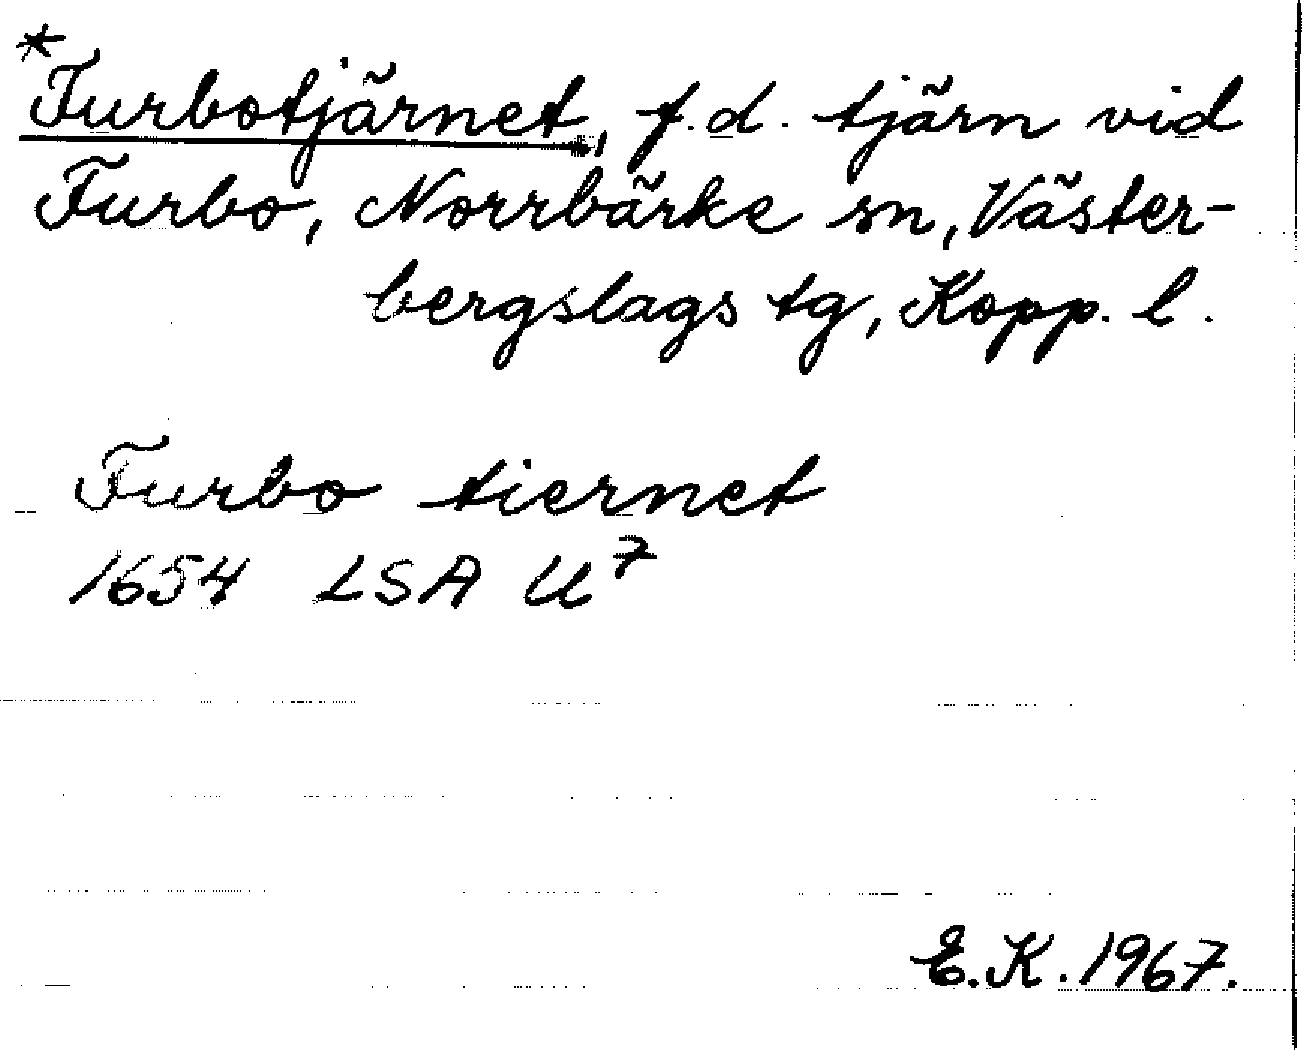 *Furbotjärnet, f.d. tjärn vid
Furbo, Norrbärke sn, Väster-
bergslags tg, Kopp. l.
Furbo tiernet
1654 LSA U⁷
E.K. 1967.